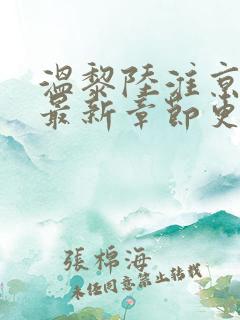 温黎陆淮京
最新章节更
張棉海
未经同意禁止转载